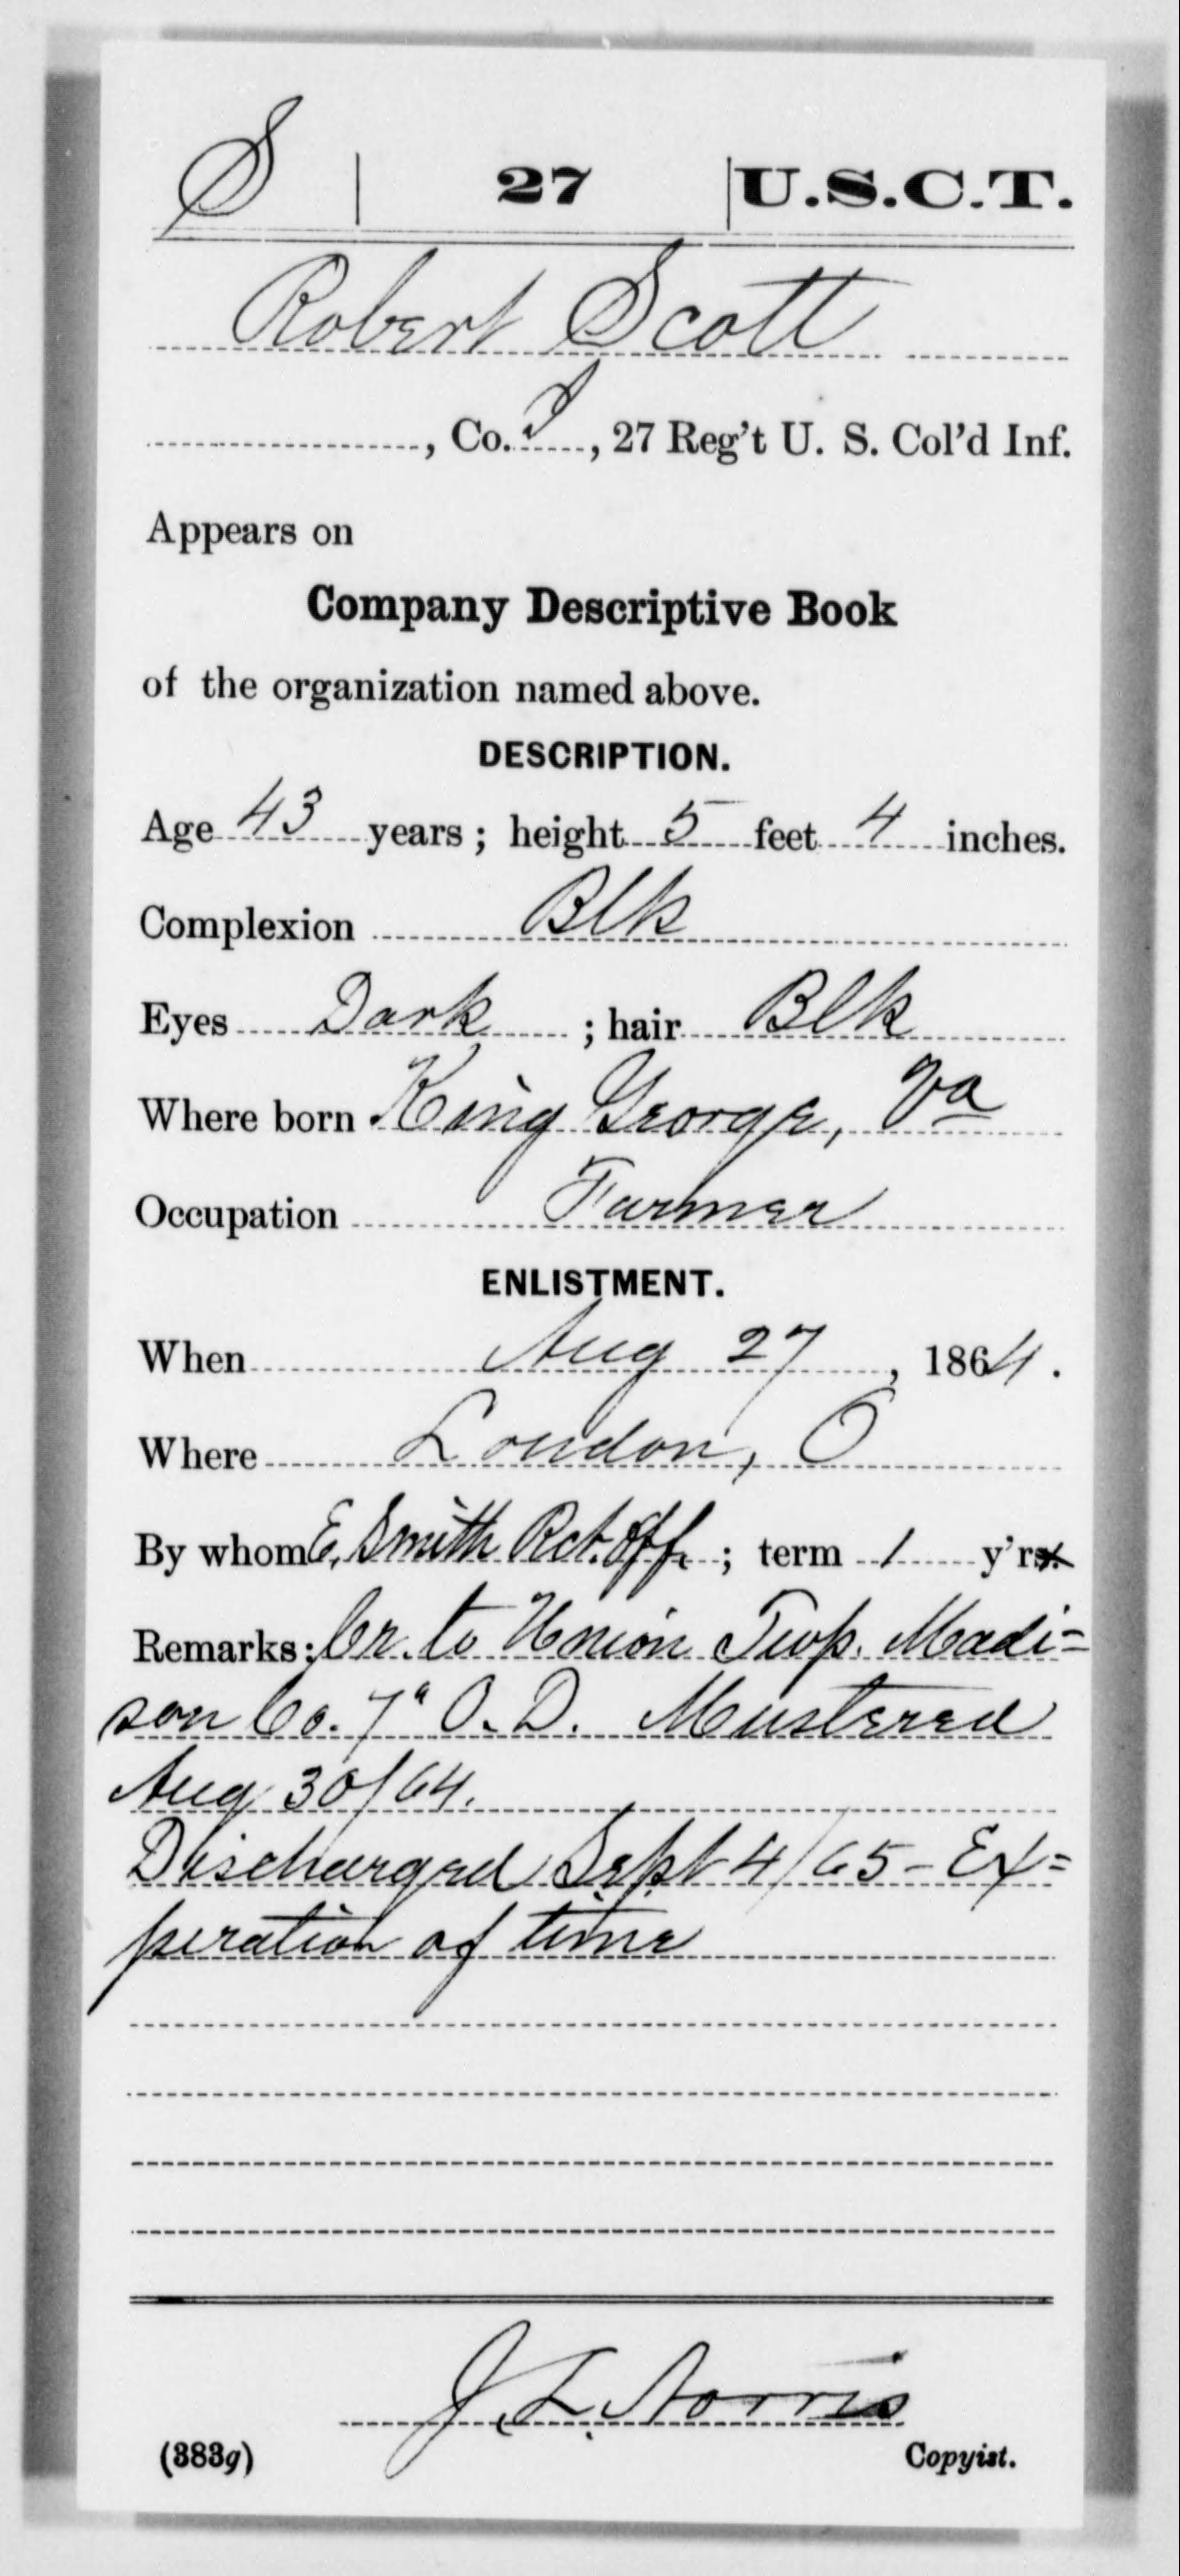 S | 27 | U.S.C.T.
Robert Scott
, Co. I, 27 Reg't U. S. Col'd Inf.
Appears on
Company Descriptive Book
of the organization named above.
DESCRIPTION.
Age 43 years; height 5 feet 4 inches.
Complexion Blk
Eyes Dark; hair Blk
Where born King George, Va
Occupation Farmer
ENLISTMENT.
When Aug 27, 1864.
Where London, O
By whom E. Smith Rct. Off.; term 1 y'rs.
Remarks: Cr. to Union Twp. Madi=
son Co. 7" O. D. Mustered
Aug 30/64.
Discharged Sept 4/65 - Ex=
piration of time
J. L. Norris
(383g) Copyist.